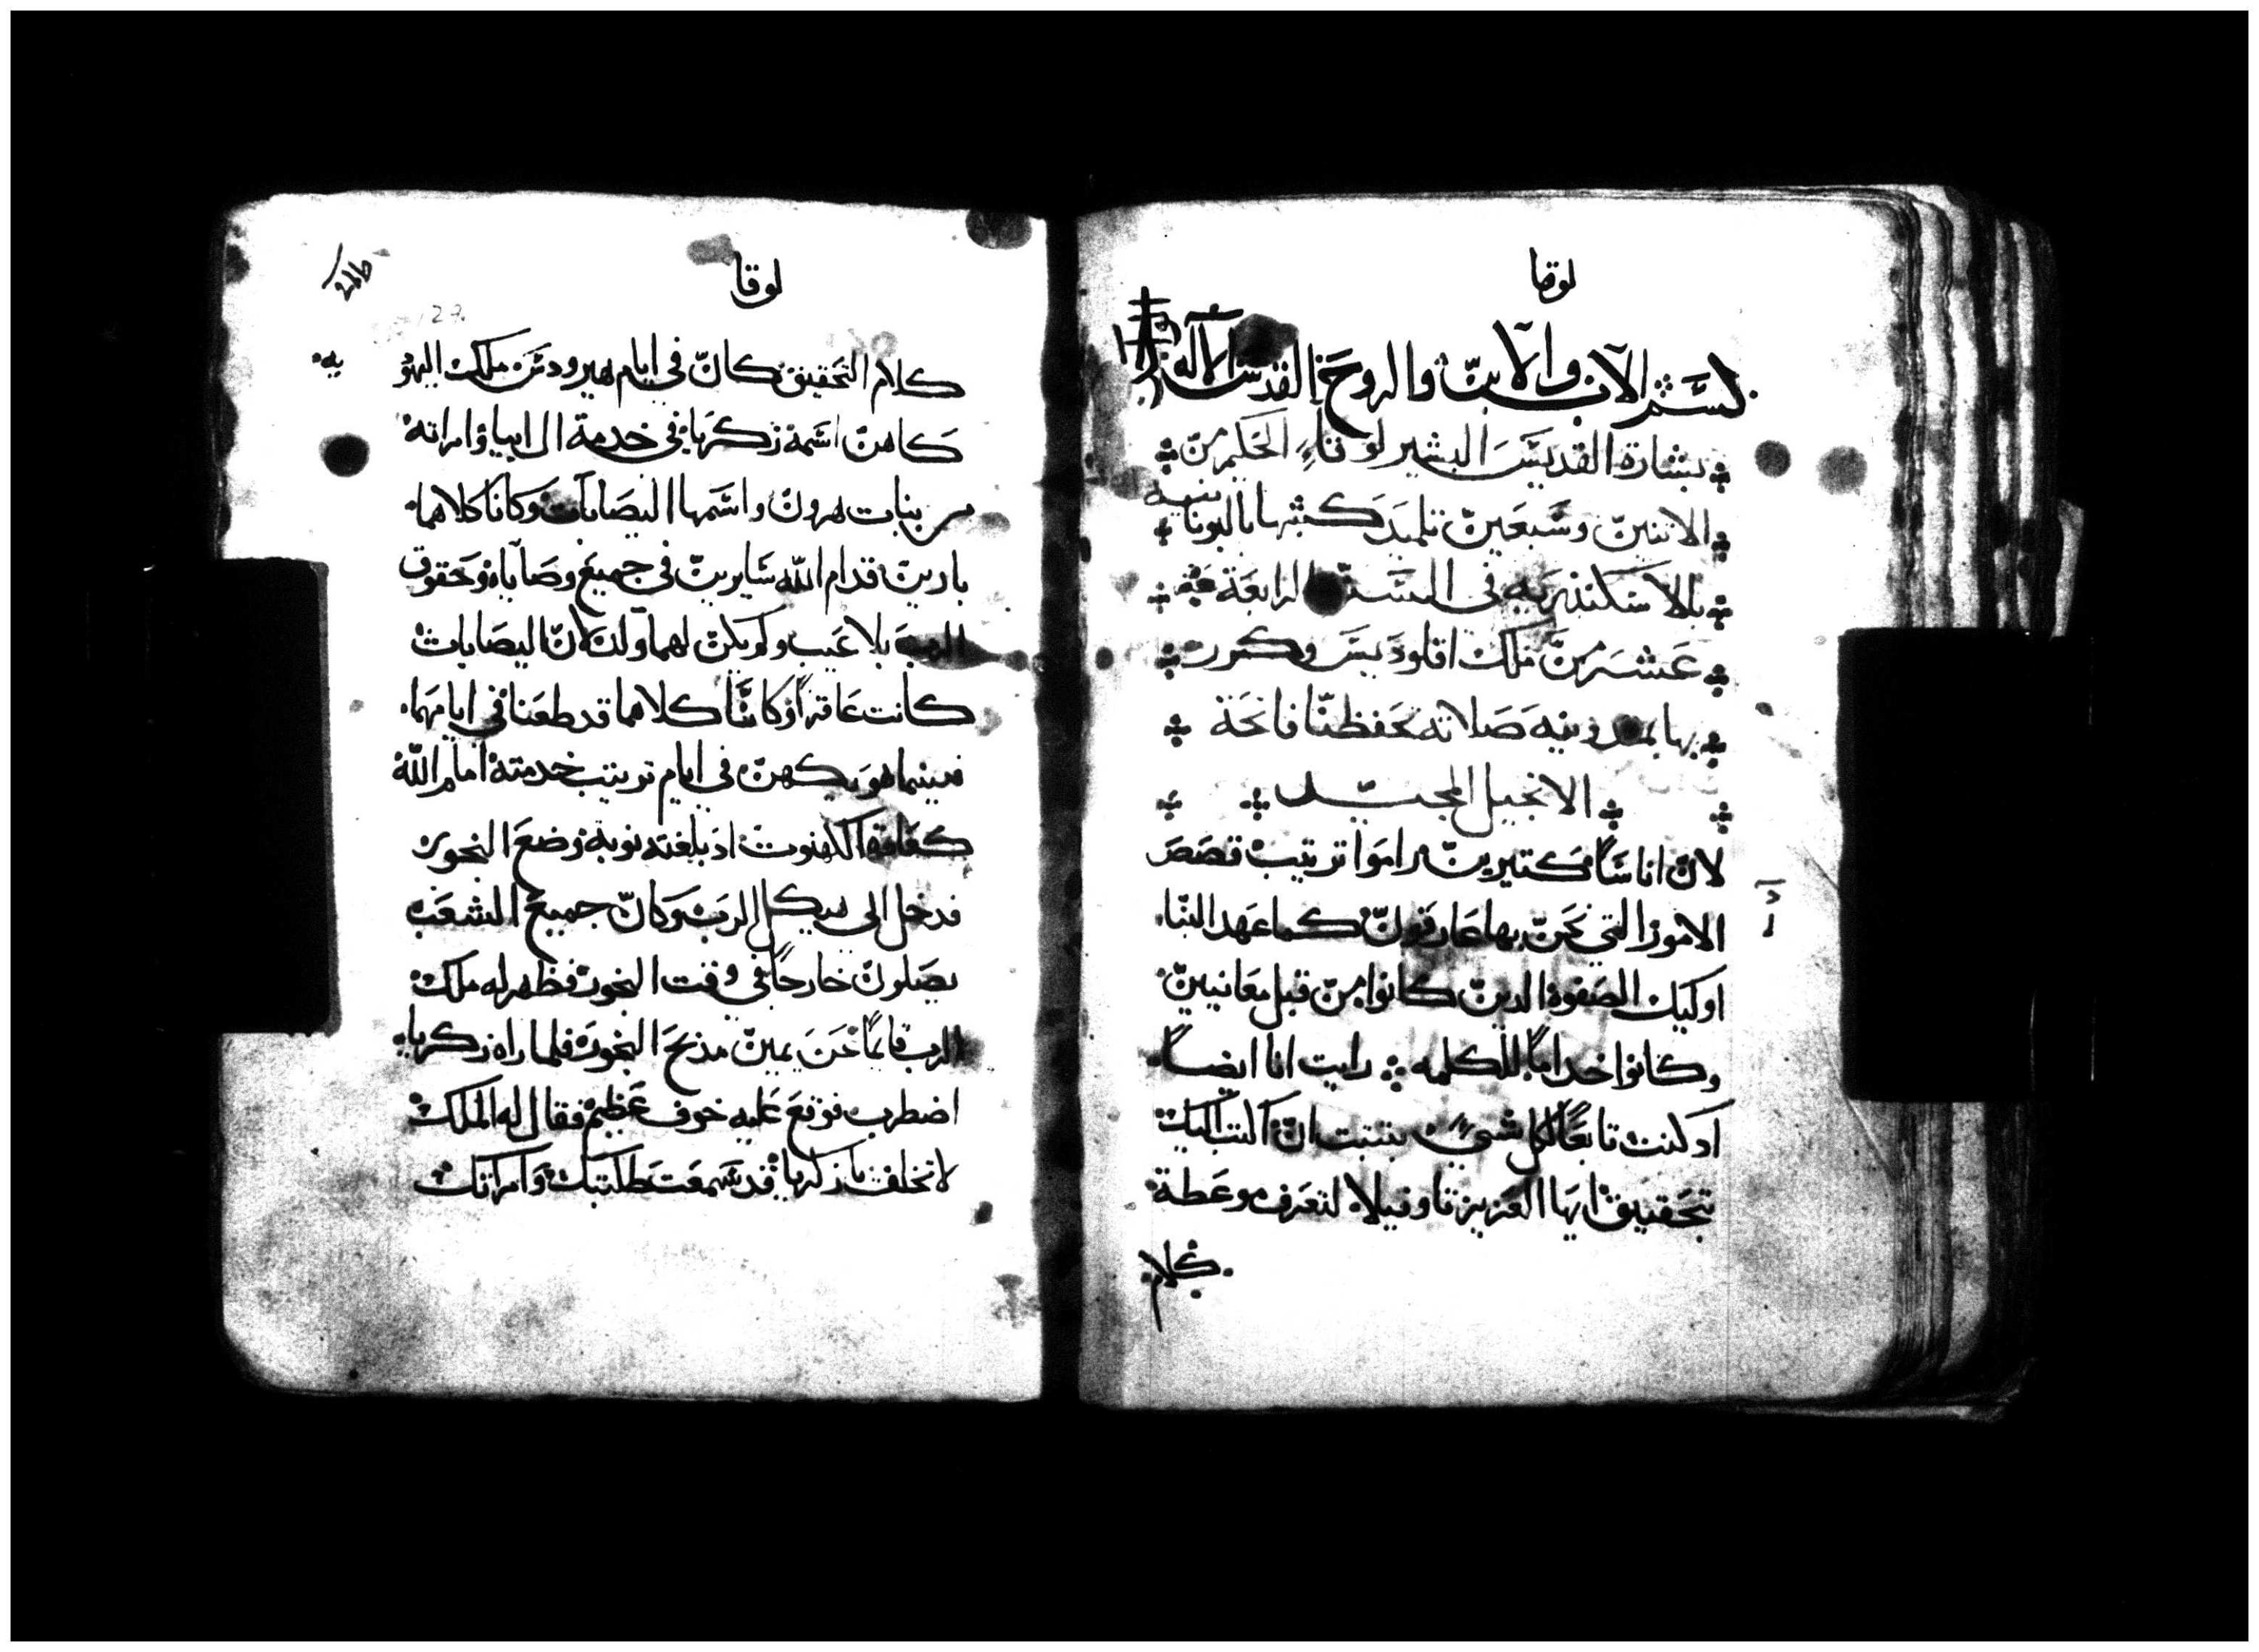 لوقا
بسم الاب والابن والروح القدس الاله
بشارة القديس البشير لوقا الحكيم من
الاتنين وسبعين تلميد كتبها باليونانيه
بالاسكندريه في السنة الرابعة
عشر من ملك اقلوديس وكمرت
بها صلاته تحفظنا فاتحة
الانجيل المجيد
لان اناسًا كتيرين راموا ترتيب قصص
الامور التي نحن بها عارفون كما عهد الينا
اوليك الصفوة الدين كانوا من قبل معانيين
وكانوا خدامًا للكلمه رايت انا ايضًا
اد كنت تابعًا لكل شيء بتتبت ان اكتب اليك
تحقيق ايها العزيز تاوفيلا لتعرف وعظة
كلام
لوقا
كلام التحقيق كان في ايام هيرودس ملك اليهو
كاهن اسمه زكريا في خدمة ال ابيا وامراته
من بنات هرون واسمها اليصابات وكانا كلاهما
بارين قدام الله سايرين في جميع وصاياه وحقوق
الرب بلا عيب ولم يكن لهما ولد لان اليصابات
كانت عاقرًا وكانا كلاهما قد طعنا في ايامهما
فبينما هو يكهن في ايام ترتيب خدمته امام الله
كعادة الكهنوت اد بلغته نوبة وضع البخور
فدخل الى هيكل الرب وكان جميع الشعب
يصلون خارجًا في وقت البخور فظهر له ملك
الرب قايمًا عن يمين مدبح البخور فلما راه زكريا
اضطرب فوقع عليه خوف عظيم فقال له الملك
لا تخاف يا زكريا قد سمعت طلبتك وامراتك